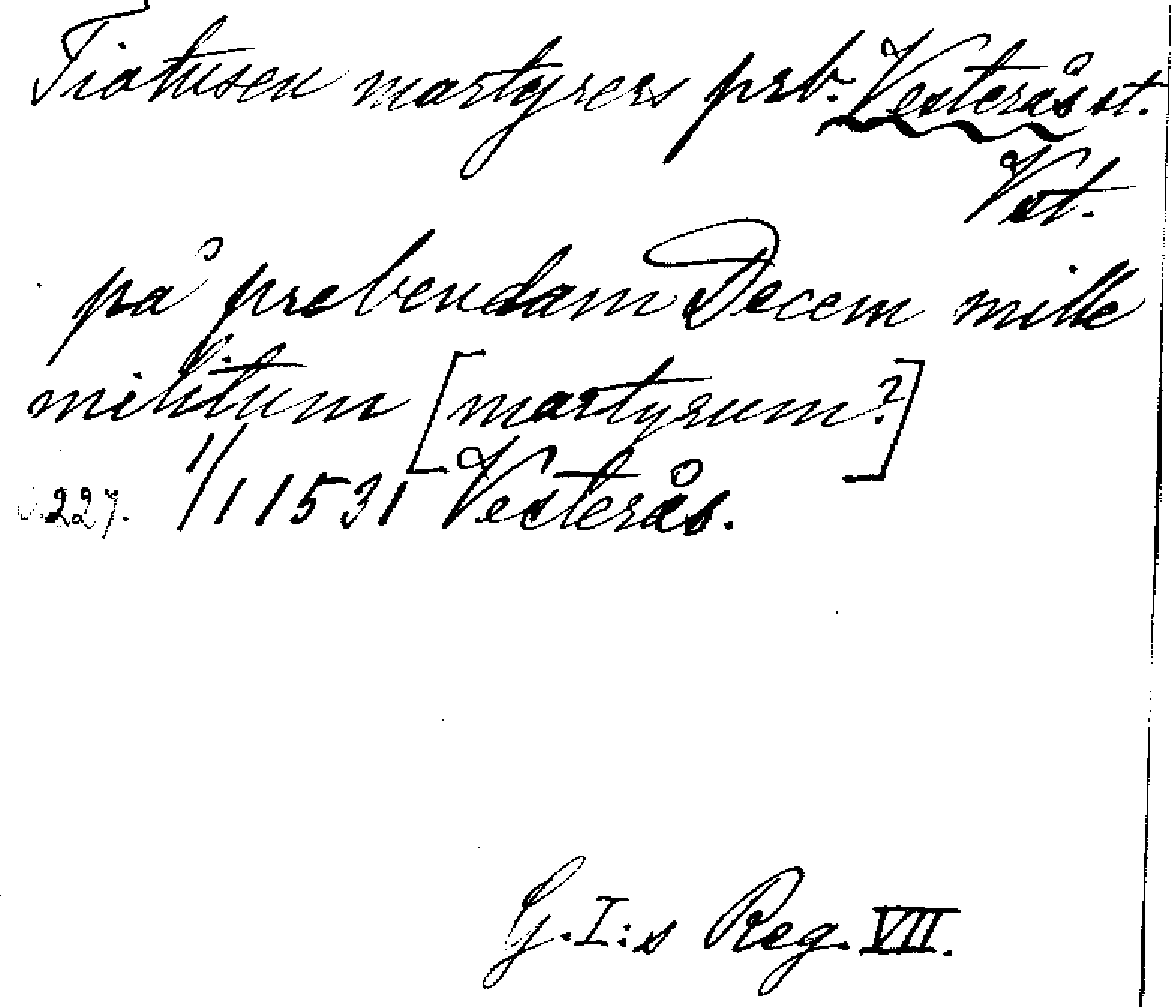 Tiotusen martyrers prb. Vesterås st.
Vst.
på prebendam Decem mille
militum [martyrum?]
s. 227. 1/1 1531 Vesterås.
G. I:s Reg. VII.